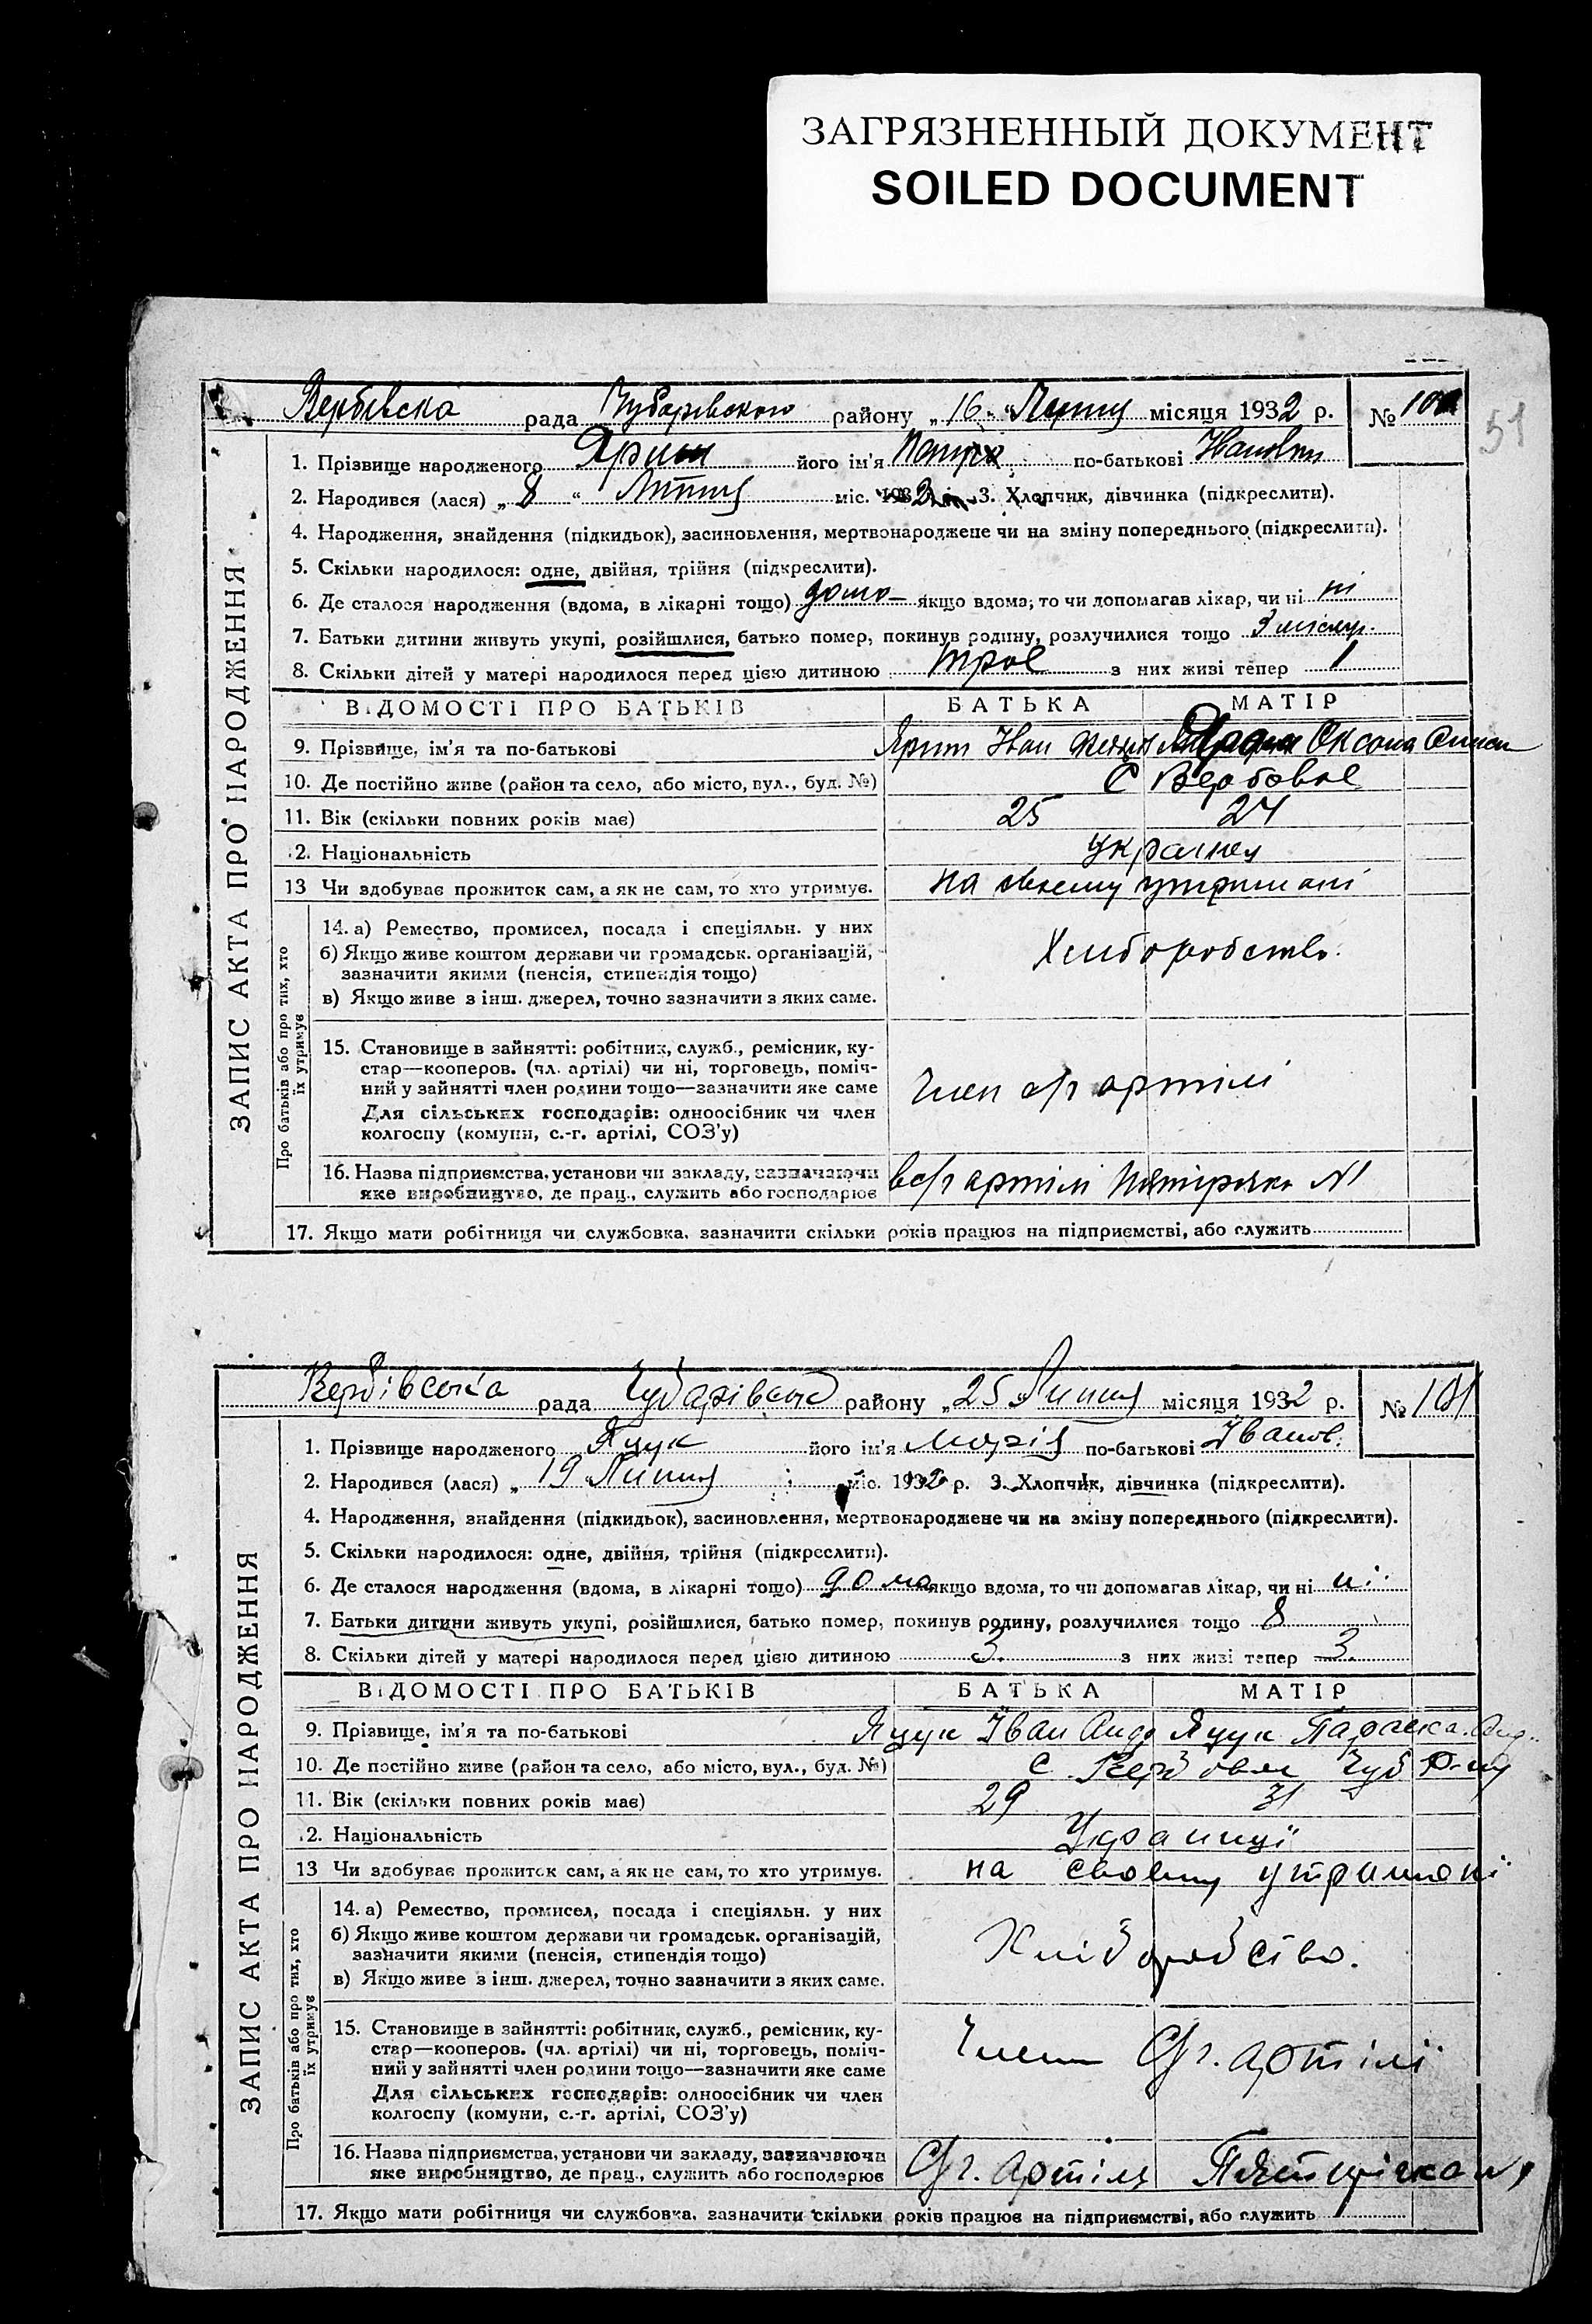 ЗАГРЯЗНЕННЫЙ ДОКУМЕНТ
SOILED DOCUMENT
51
Вербівска рада Чубарівского району „16“ Липня місяця 1932 р. № 100
1. Прізвище народженого його ім'я по-батькові
2. Народився (лася) „8“ Липня міс. 1932 3. Хлопчик, дівчинка (підкреслити).
4. Народження, знайдення (підкидьок), засиновлення, мертвонароджене чи на зміну попереднього (підкреслити).
5. Скільки народилося: одне, двійня, трійня (підкреслити).
6. Де сталося народження (вдома, в лікарні тощо) дома якщо вдома, то чи допомагав лікар, чи ні ні
7. Батьки дитини живуть укупі, розійшлися, батько помер, покинув родину, розлучилися тощо
8. Скільки дітей у матері народилося перед цією дитиною троє з них живі тепер 1
ВІДОМОСТІ ПРО БАТЬКІВ БАТЬКА МАТІР
9. Прізвище, ім'я та по-батькові Іван Оксана
10. Де постійно живе (район та село, або місто, вул., буд. №) С Вербове
11. Вік (скільки повних років має) 25 24
12. Національність
13 Чи здобуває прожиток сам, а як не сам, то хто утримує. на своєму утримані
14. а) Ремество, промисел, посада і спеціяльн. у них
б) Якщо живе коштом держави чи громадськ. організацій,
зазначити якими (пенсія, стипендія тощо)
Хлиборобство.
в) Якщо живе з інш. джерел, точно зазначити з яких саме.
15. Становище в зайнятті: робітник, служб., ремісник, ку-
стар—кооперов. (чл. артілі) чи ні, торговець, поміч-
ний у зайнятті член родини тощо—зазначити яке саме
Член с/г артілі
Для сільських господарів: одноосібник чи член
колгоспу (комуни, с.-г. артілі, СОЗ'у)
16. Назва підприємства, установи чи закладу, зазначаючи
яке виробництво, де прац., служить або господарює в с/г артілі Пятирічка N1
17. Якщо мати робітниця чи службовка, зазначити скільки років працює на підприємстві, або служить
ЗАПИС АКТА ПРО НАРОДЖЕННЯ
Про батьків або про тих, хто їх утримує
Вербівська рада Чубарівськ району „25 Липня місяця 1932 р. № 101
1. Прізвище народженого Яцук його ім'я Марія по-батькові Іванов.
2. Народився (лася) „ 19 Липня міс. 1932 р. 3. Хлопчик, дівчинка (підкреслити).
4. Народження, знайдення (підкидьок), засиновлення, мертвонароджене чи на зміну попереднього (підкреслити).
5. Скільки народилося: одне, двійня, трійня (підкреслити).
6. Де сталося народження (вдома, в лікарні тощо) дома якщо вдома, то чи допомагав лікар, чи ні ні
7. Батьки дитини живуть укупі, розійшлися, батько помер, покинув родину, розлучилися тощо 8
8. Скільки дітей у матері народилося перед цією дитиною 3. з них живі тепер 3.
ВІДОМОСТІ ПРО БАТЬКІВ БАТЬКА МАТІР
9. Прізвище, ім'я та по-батькові Яцук Іван Андр Яцук Параска. Анд..
10. Де постійно живе (район та село, або місто, вул., буд. №) С Вербове Чуб Р-ну
11. Вік (скільки повних років має) 29 31
12. Національність Українці
13 Чи здобуває прожиток сам, а як не сам, то хто утримує. на своєму утримані
14. а) Ремество, промисел, посада і спеціяльн. у них
б) Якщо живе коштом держави чи громадськ. організацій,
зазначити якими (пенсія, стипендія тощо)
Хліборобство.
в) Якщо живе з інш. джерел, точно зазначити з яких саме.
15. Становище в зайнятті: робітник, служб., ремісник, ку-
стар—кооперов. (чл. артілі) чи ні, торговець, поміч-
ний у зайнятті член родини тощо—зазначити яке саме
Члени С/г. артілі
Для сільських господарів: одноосібник чи член
колгоспу (комуни, с.-г. артілі, СОЗ'у)
16. Назва підприємства, установи чи закладу, зазначаючи
яке виробництво, де прац., служить або господарює С/г. артіль Пятирічка N1
17. Якщо мати робітниця чи службовка, зазначити скільки років працює на підприємстві, або служить
ЗАПИС АКТА ПРО НАРОДЖЕННЯ
Про батьків або про тих, хто їх утримує